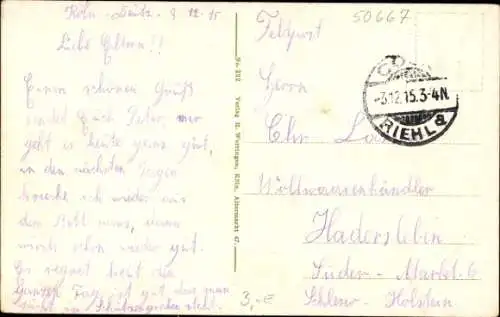 Köln-Deutz. 3.12.15
Liebe Eltern!!
Einen schönen Gruß
sendet Euch Peter, mir
geht es heute ganz gut,
in den nächsten Tagen
ich wieder aus
dem Bett raus,
schon wieder gut.
Es regnet heut die
ganzen Tag, ist gut das man
nicht im Schützengraben steht.
No. 212 Verlag H. Worringen, Köln, Altermarkt 47.
50667
Feldpost
Herrn
Chr.
Wollwarenhändler
Hadersleben
Süder-Markt 6
Schlesw-Holstein
CÖLN
-3.12.15.3-4N.
RIEHL a
3,-€